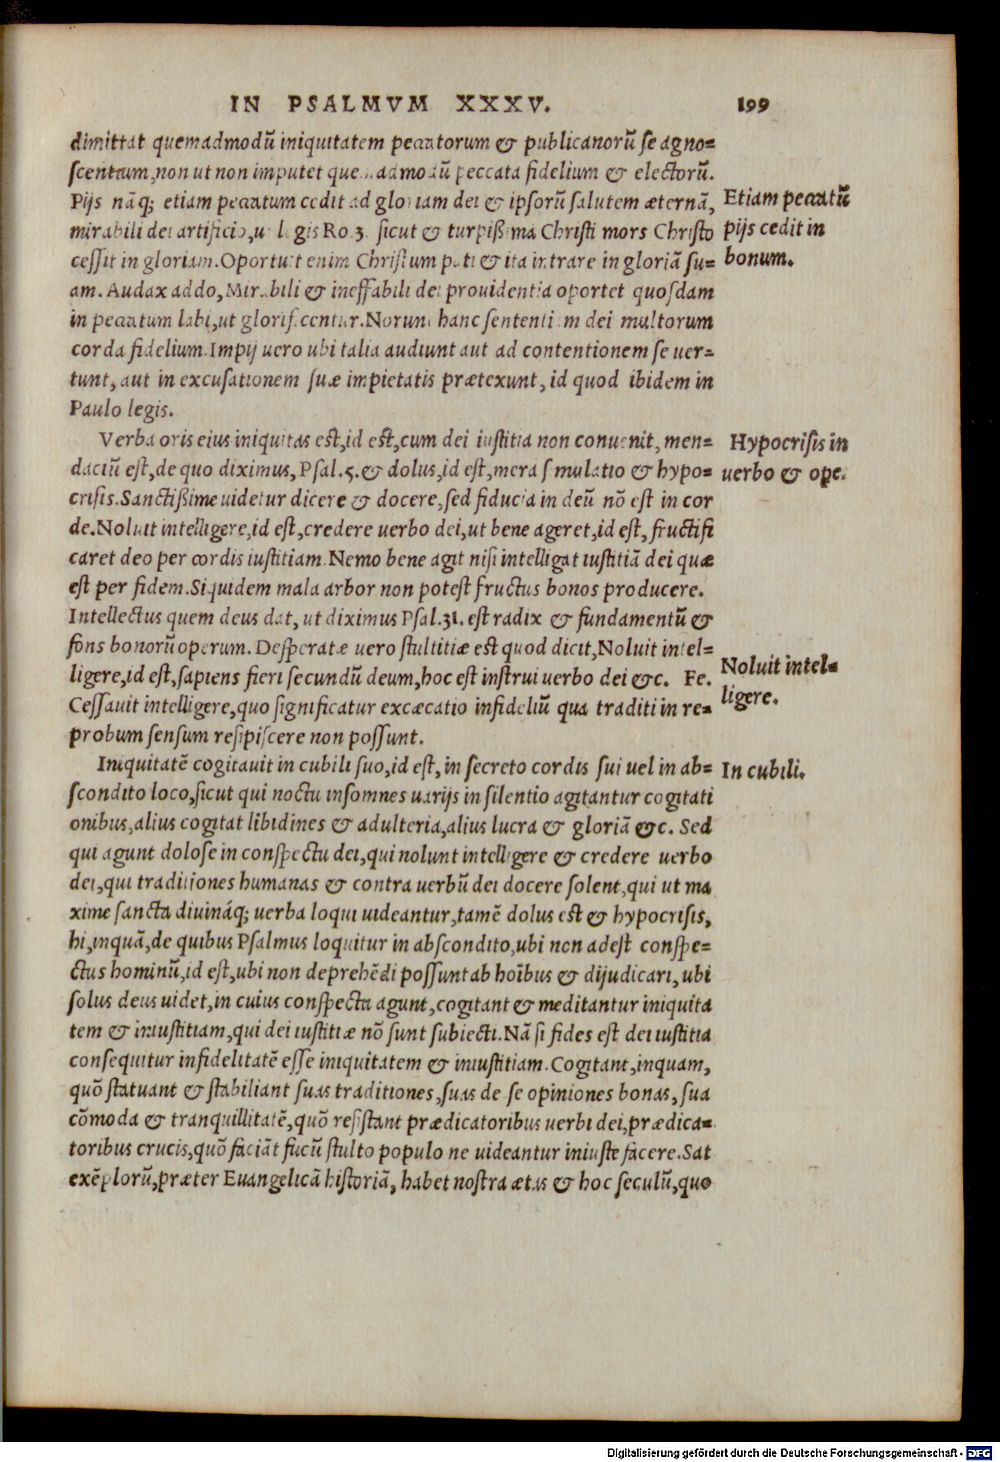 IN PSALMVM XXXV. 199
dimittat quemadmodũ iniquitatem peccatorum & publicanorũ se agno=
scentium, non ut non imputet quemadmodũ peccata fidelium & electorũ.
Pijs nãq; etiam peccatum cedit ad gloriam dei & ipsorũ salutem æternã,
Etiam peccatũ
mirabili dei artificio, ut legis Ro. 3. sicut & turpißima Christi mors Christo
pijs cedit in
cessit in gloriam. Oportuit enim Christum pati & ita intrare in gloriã su=
bonum.
am. Audax addo, Mirabili & ineffabili dei prouidentia oportet quosdam
in peccatum labi, ut glorificentur. Norunt hanc sententiam dei multorum
corda fidelium. Impij uero ubi talia audiunt aut ad contentionem se uer=
tunt, aut in excusationem suæ impietatis prætexunt, id quod ibidem in
Paulo legis.
Verba oris eius iniquitas est, id est, cum dei iustitia non conuenit, men=
Hypocrisis in
daciũ est, de quo diximus, Psal. 5. & dolus, id est, mera simulatio & hypo=
uerbo & ope.
crisis. Sanctißime uidetur dicere & docere, sed fiducia in deũ nõ est in cor
de. Noluit intelligere, id est, credere uerbo dei, ut bene ageret, id est, fructifi
caret deo per cordis iustitiam. Nemo bene agit nisi intelligat iustitiã dei quæ
est per fidem. Siquidem mala arbor non potest fructus bonos producere.
Intellectus quem deus dat, ut diximus Psal. 31. est radix & fundamentũ &
fons bonorũ operum. Desperatæ uero stultitiæ est quod dicit, Noluit intel=
Noluit intel=
ligere, id est, sapiens fieri secundũ deum, hoc est instrui uerbo dei &c. Fe.
ligere.
Cessauit intelligere, quo significatur excæcatio infideliũ qua traditi in re=
probum sensum resipiscere non possunt.
Iniquitatẽ cogitauit in cubili suo, id est, in secreto cordis sui uel in ab=
In cubili.
scondito loco, sicut qui noctu insomnes uarijs in silentio agitantur cogitati
onibus, alius cogitat libidines & adulteria, alius lucra & gloriã &c. Sed
qui agunt dolose in conspectu dei, qui nolunt intelligere & credere uerbo
dei, qui traditiones humanas & contra uerbũ dei docere solent, qui ut ma
xime sancta diuináq; uerba loqui uideantur, tamẽ dolus est & hypocrisis,
hi, inquã, de quibus Psalmus loquitur in abscondito, ubi non adest conspe=
ctus hominũ, id est, ubi non deprehẽdi possunt ab hoĩbus & dijudicari, ubi
solus deus uidet, in cuius conspectu agunt, cogitant & meditantur iniquita
tem & iniustitiam, qui dei iustitiæ nõ sunt subiecti. Nã si fides est dei iustitia
consequitur infidelitatẽ esse iniquitatem & iniustitiam. Cogitant, inquam,
quõ statuant & stabiliant suas traditiones, suas de se opiniones bonas, sua
cõmoda & tranquillitatẽ, quõ resistant prædicatoribus uerbi dei, prædica=
toribus crucis, quõ faciãt fucũ stulto populo ne uideantur iniuste facere. Sat
exẽplorũ, præter Euangelicã historiã, habet nostra ætas & hoc seculũ, quo
Digitalisierung gefördert durch die Deutsche Forschungsgemeinschaft - DFG